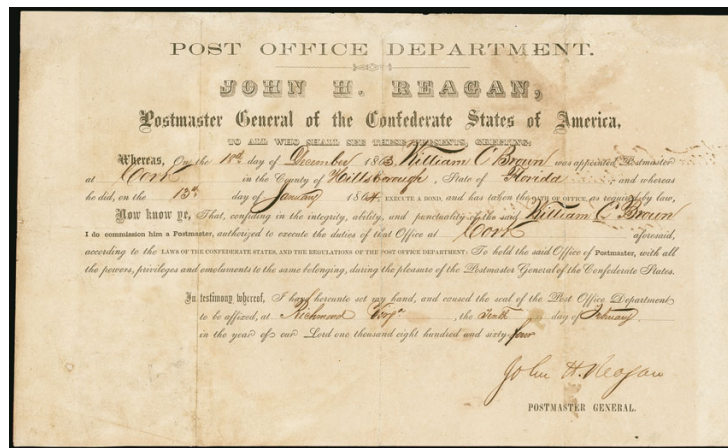 POST OFFICE DEPARTMENT.
JOHN H. REAGAN,
Postmaster General of the Confederate States of America,
TO ALL WHO SHALL SEE THESE PRESENTS, GREETING:
Whereas, On the 10th day of December 1863, William C Brown was appointed Postmaster
at Cork in the County of Hillsborough, State of Florida and whereas
he did, on the 13th day of January 1864, EXECUTE A BOND, and has taken the OATH OF OFFICE, as required by law,
Now know ye, That, confiding in the integrity, ability, and punctuality of the said William C Brown
I do commission him a Postmaster, authorized to execute the duties of that Office at Cork aforesaid,
according to the LAWS OF THE CONFEDERATE STATES, AND THE REGULATIONS OF THE POST OFFICE DEPARTMENT: To hold the said Office of Postmaster, with all
the powers, privileges and emoluments to the same belonging, during the pleasure of the Postmaster General of the Confederate States.
In testimony whereof, I have hereunto set my hand, and caused the seal of the Post Office Department
to be affixed, at Richmond the Tenth day of February
in the year of our Lord one thousand eight hundred and sixty-four
John H. Reagan
POSTMASTER GENERAL.